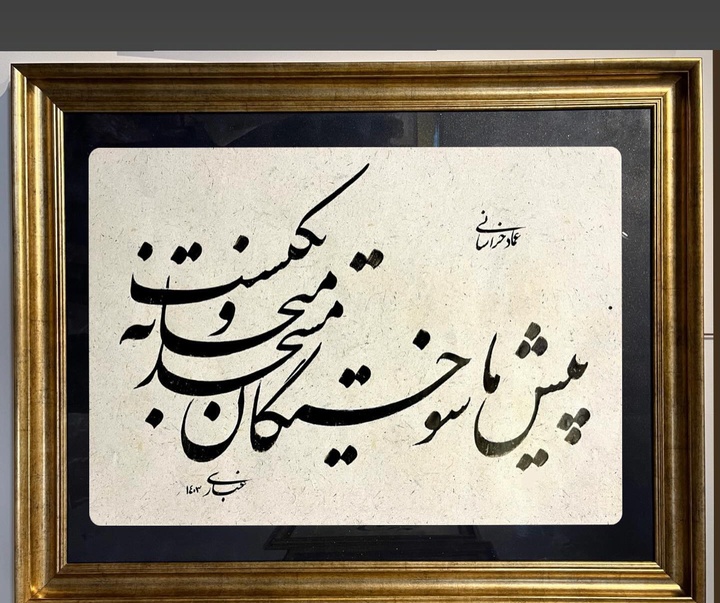 عماد خراسانی
پیش ما سوختگان مسجد و میخانه یکیست
غباری ۱۴۰۳